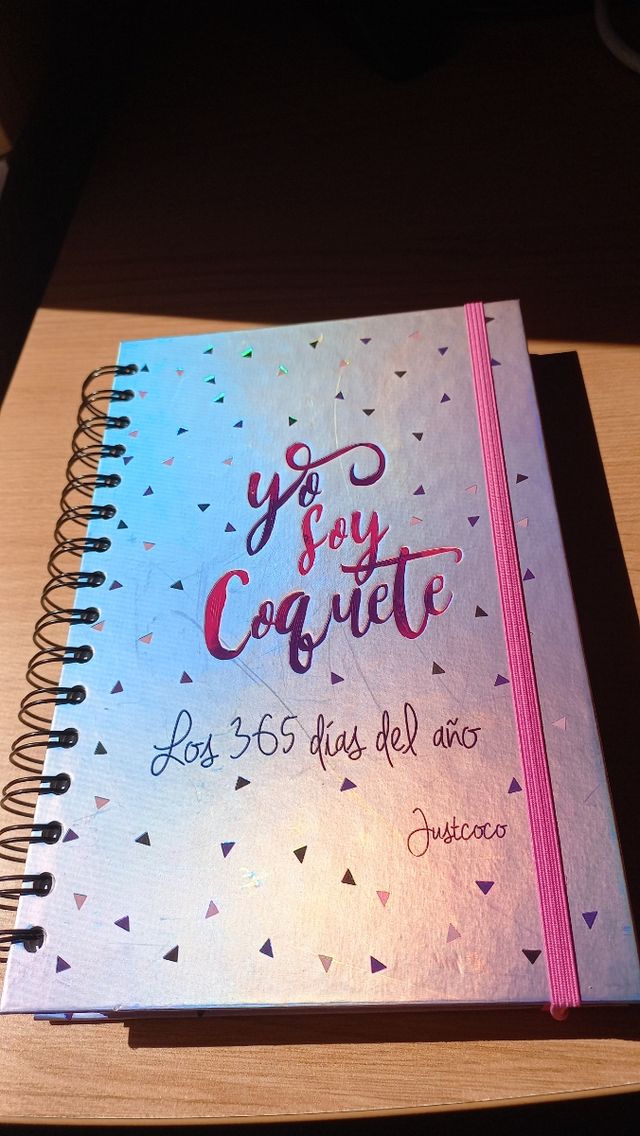 yo
soy
Coquete
Los 365 días del año
Justcoco